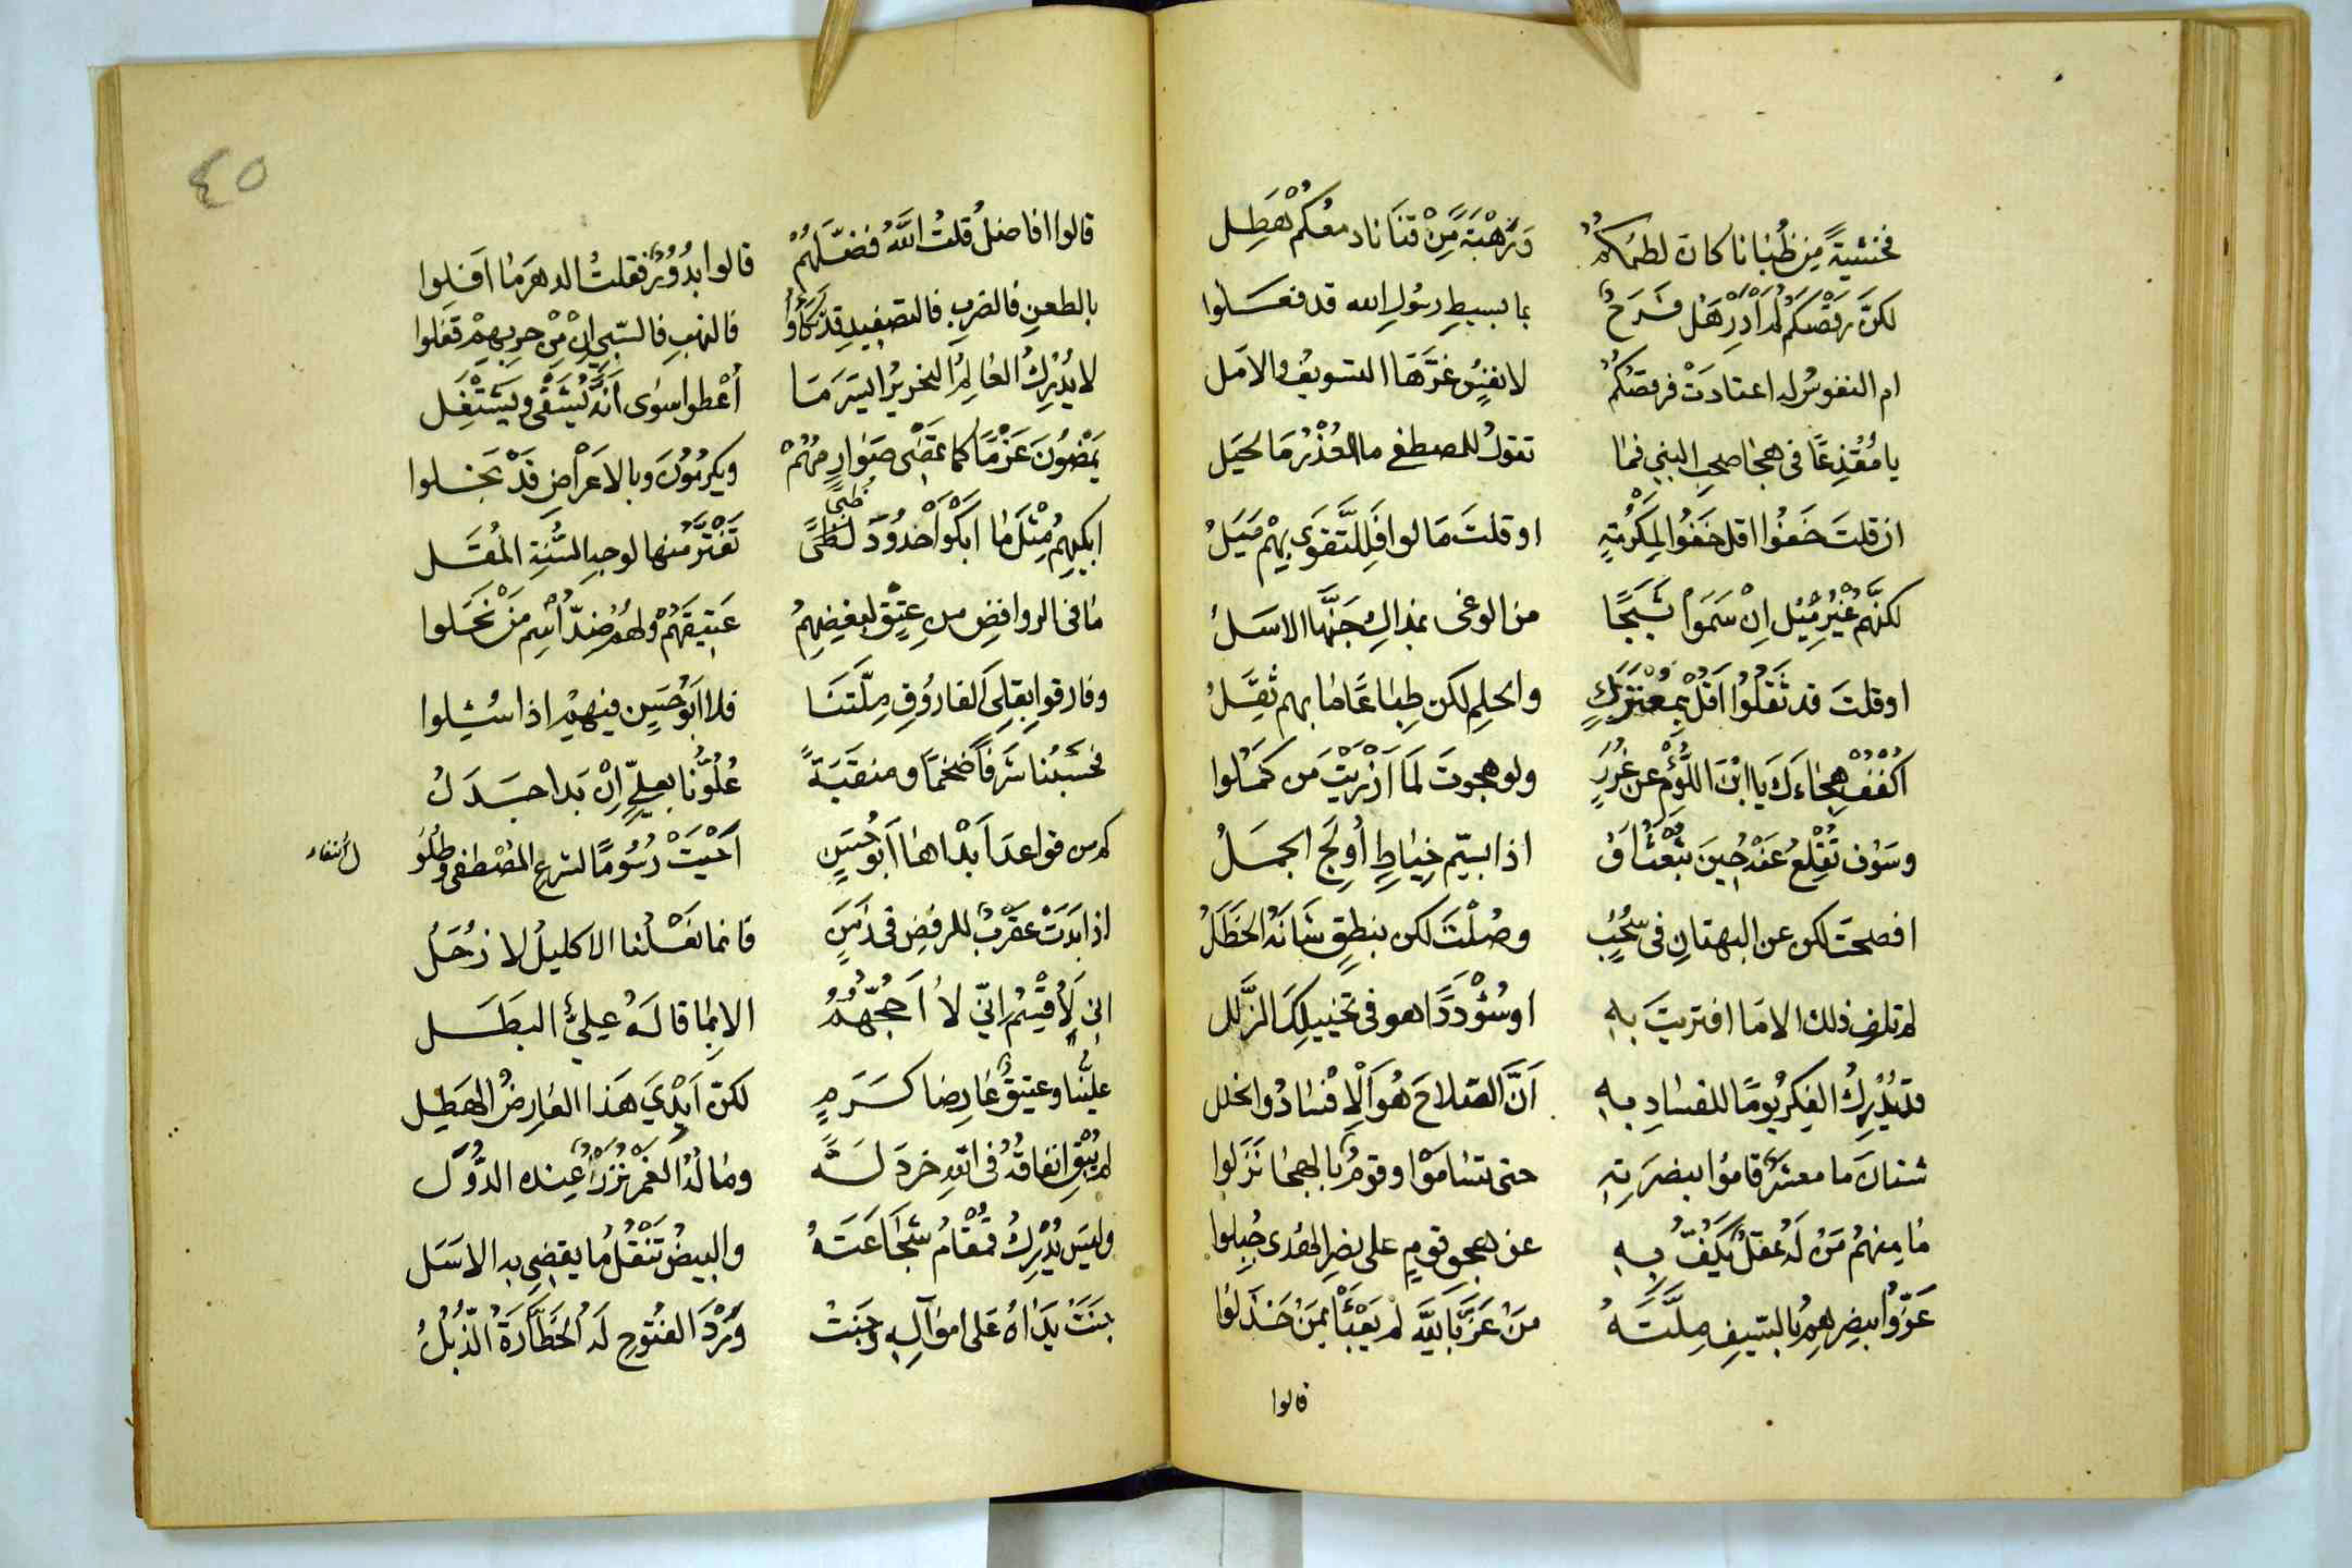 فخشيةً مِن ظُبانا كان لطمُكمُ وَرَهْبَةً مِّنْ قَنَانا دمعُكمْ هَطِل
لكنَّ رقْصَكمُ لم أَدْرِ هَل فَرَحٌ بما بسبطِ رسُولِ الله قد فعَلوا
ام النفوسُ له اعتادَتْ فرقصُكمُ لانفسٍ غرَّهَا التسويفُ والامَل
يا مُقْذِعًا فى هجا صحبِ النبي فما تقولُ للمصطفى ما العُذْرُ مَا الحيَل
ان قلتَ خَفُوا اقل خَفُوا لِمَكرُمَةٍ او قلتَ مَالوا فَلِلتَّقوَى بهمْ مَيَلُ
لكنَّهم غيْرُ مِيْلٍ اِنْ سَمَوْا ثَبَجًا من الوغى بمذاكٍ جَنَّها الاسَلُ
او قلتَ قد ثَقلُوا اَقُلْ بِمُعْتَرَكٍ والحلمِ لكن طِبَاعًا ما بهم ثِقَلُ
اكْفُفْ هِجَاءَكَ يا ابْنَ اللُّؤْمِ عن غُرَرٍ ولو هجوتَ لَمَا اَزْرَيْتَ مَن كَمَلوا
وسَوْف تُقْلعُ عَنْه حِينَ اذا بسَمِّ خِيَاطٍ أُولِجَ الجمَلُ
افصحتَ لكن عن البهتانِ فى سُحُبٍ وصُلْتَ لكن بنطقٍ شَانَهُ الخَطَلُ
لم تلف ذلك الا مَا افتريتَ بهِ او سُؤْدَدًا هو فى تخييلِكَ الزَّلل
قد يُدْرِكُ الفِكرُ يومًا للفسَادِ بهِ اَنَّ الصَّلاحَ هُوَ اَلْاِفْسَادُ والخلل
شتانَ ما معشَرٌ قامُوا بنصرَتِهِ حتى تسَامَوْا وقومٌ بالهجَا نَزَلوا
مَا منهمُ مَنْ لَهُ عَقلٌ يَكُفُّ بِهِ عن هجوِ قومٍ على نصرِ الهُدى جُبِلوا
عَزّوا بنصرِهِمُ بالسَّيفِ مِلَّتَهُ مَنْ عَزَّ بَاللَّه لم يَعْبَأْ بمَنْ خَذَلوا
قالوا
٤٥
قالوا افاضلُ قلتُ اللهُ فضّلَهُمْ قالوا بدُوْرٌ فقلتُ الدهرَ مَا اَفَلوا
بالطعنِ فالضربِ فالتصفيدِ قد فالنهبِ فالسَّبيِ اِنْ مِّنْ حربِهِمْ قَفَلوا
لا يُدْرِكُ العَالِمُ النحريرُ ايسَرَ مَا أُعْطوا سوَى اَنَّهُ يَشْقَى ويشْتَغِل
يَمْضُونَ عَزْمًا كما تمضى صَوَارِمُهُمْ ويكرمُوْنَ وبالاعَرْاضِ قَدْ بَخلوا
ابكيهمُ مِثْلَ مَا اَبكَوْا خدُوْدَ ظبًى تَفْتَرُّ منها لوجهِ السُّنةِ المُقَل
مَا فى الروافضِ من عِتْقٍ لبغضِهِمُ عَتيقَهُمْ ولهُمْ ضِدُّ اسْمِ مَنْ نَحَلوا
وفارقوا بقِلَى الفاروقِ مِلَّتنَا فلا ابُو حسَينٍ فيهِمْ اذا سُئِلوا
فحَسْبُنا شَرفًا ضخمًا ومنقبَةً عُلُوُّنا بعليٍّ اِنْ بَدا جَدَلُ
كم من قواعدَ اَبْدَاها اَبوُ حُسَينٍ اَحْيَتْ رُسُومًا لشرعِ المُصْطفى وطُلُوُ
ل
اذا بَدَتْ عَقْرَبٌ للرفضِ فى زَمَنٍ فانما نَعْلُنا الاكليلُ لا زُحَلُ
اني لَاُقْسِمُ انّي لا اَحجّهُمُ الا بِمَا قالهُ عليٌّ البَطَل
علينا وعتيقٌ عَارضا كَرَمٍ لكنّ اَيْدِيَ هَذا العَارِضُ الهَطِل
لم يُبْقِ انفاقُهُ فى اللهِ خردَلَةً ومَا لَهُ الغَمْرُ نَزْرٌ عِنده الدُّوَل
وليسَ يُدْرِكُ قَمْقَامٌ شَجَاعَتَهُ والبيضُ تنْقُلُ مَا يقضِي به الاسَل
جنَتْ يدَاهُ عَلى اموَالِهِ وجَنتْ وَرْدَ الفتوحِ لَهُ الخَطَّارَةُ الذُّبُلُ